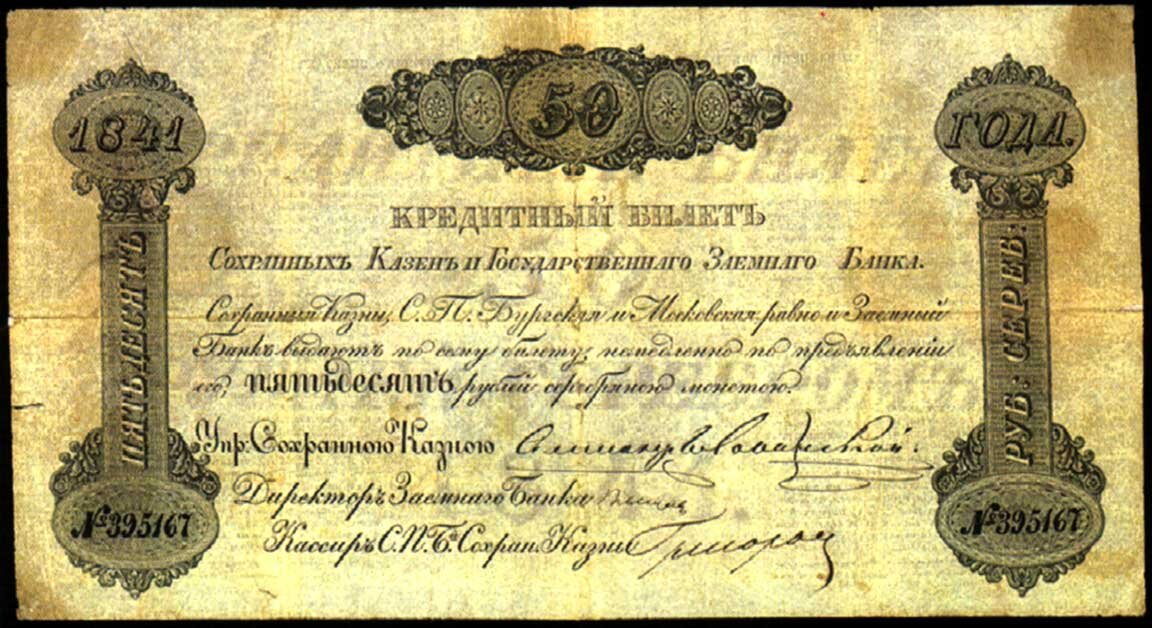 1841
50
ГОДА.
КРЕДИТНЫЙ БИЛЕТЪ
Сохранныхъ Казенъ и Государственнаго Заемнаго Банка.
Сохранныя Казны, С. П. Бургская и Московская равно и Заемный
Банкъ выдаютъ по сему билету, немедленно по предъявленіи
его, пятьдесятъ рублей серебряною монетою.
Упр: Сохранною Казною
Директоръ Заемнаго Банка
Кассиръ С. П. Б. Сохран. Казны
ПЯТЬДЕСЯТЪ
РУБ: СЕРЕБ:
№395167
№395167